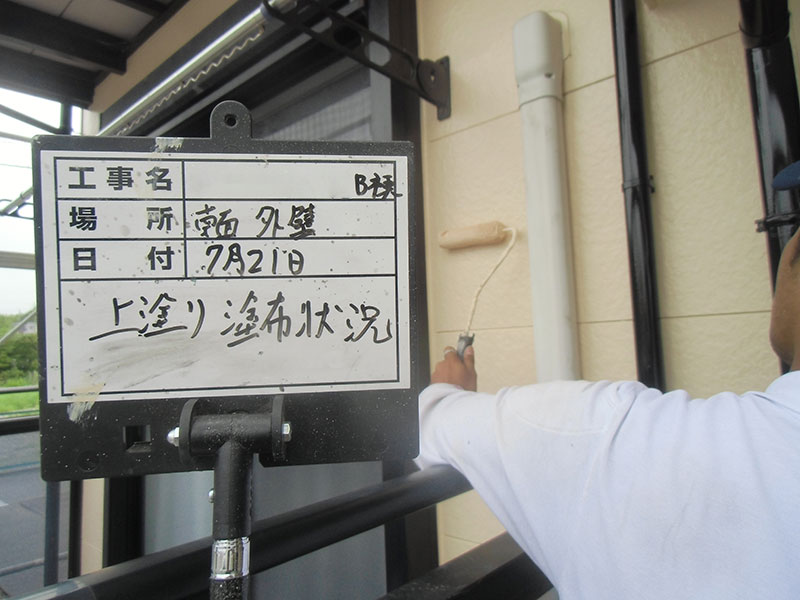 工事名 B棟
場所 南面 外壁
日付 7月21日
上塗り 塗布状況